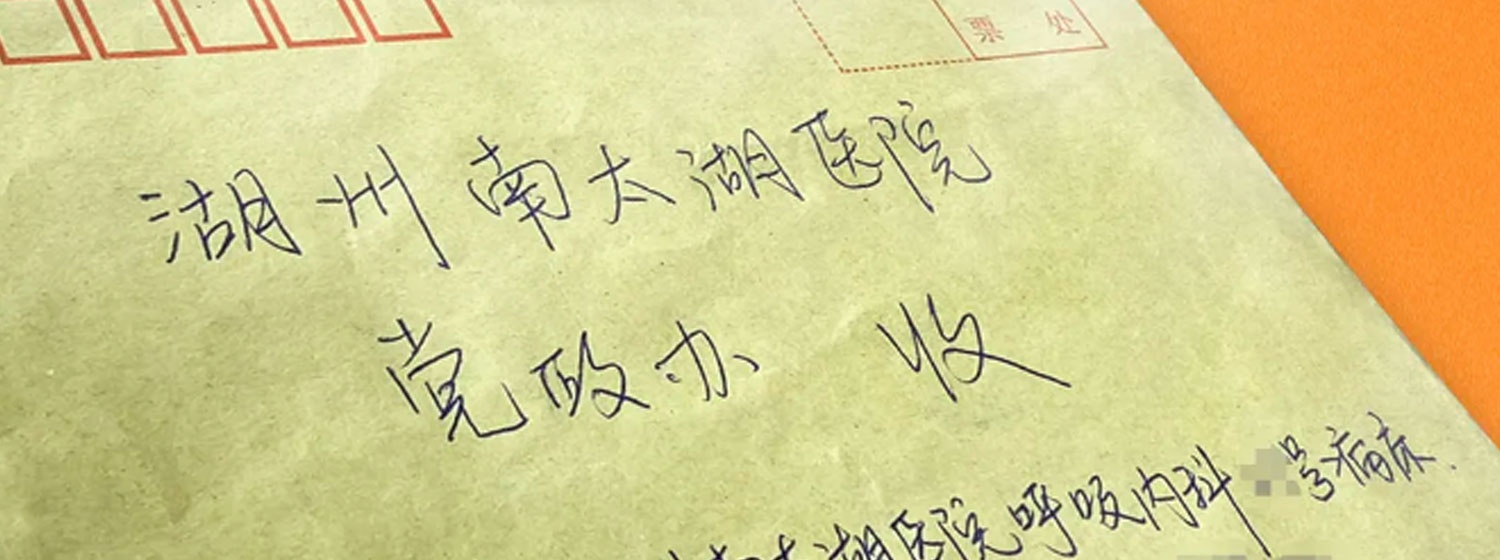 票 处
湖州南太湖医院
党政办 收
南太湖医院呼吸内科 号病床